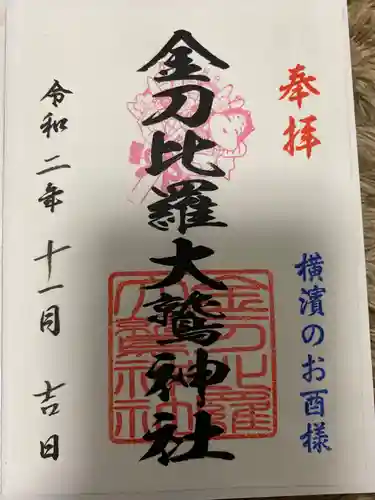 奉拝
横濱のお酉様
金刀比羅大鷲神社
金刀比羅
大鷲神社
令和二年十一月吉日